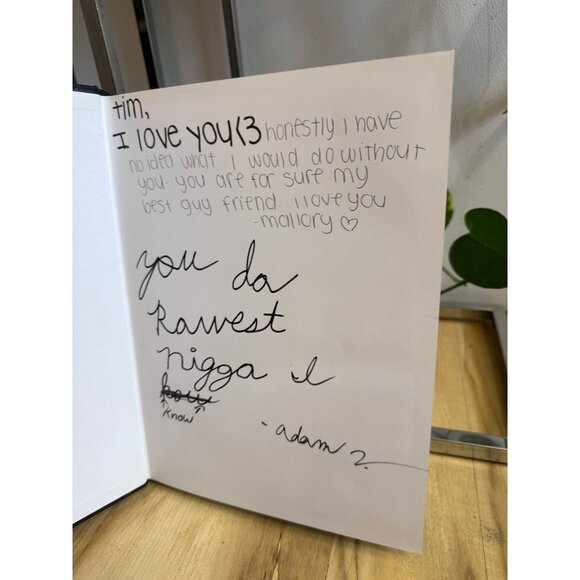 tim,
I love you<3 honestly I have
no idea what I would do without
you. you are for sure my
best guy friend. I love you
-mallory ♡
you da
Rawest
nigga I
know
- adam z.